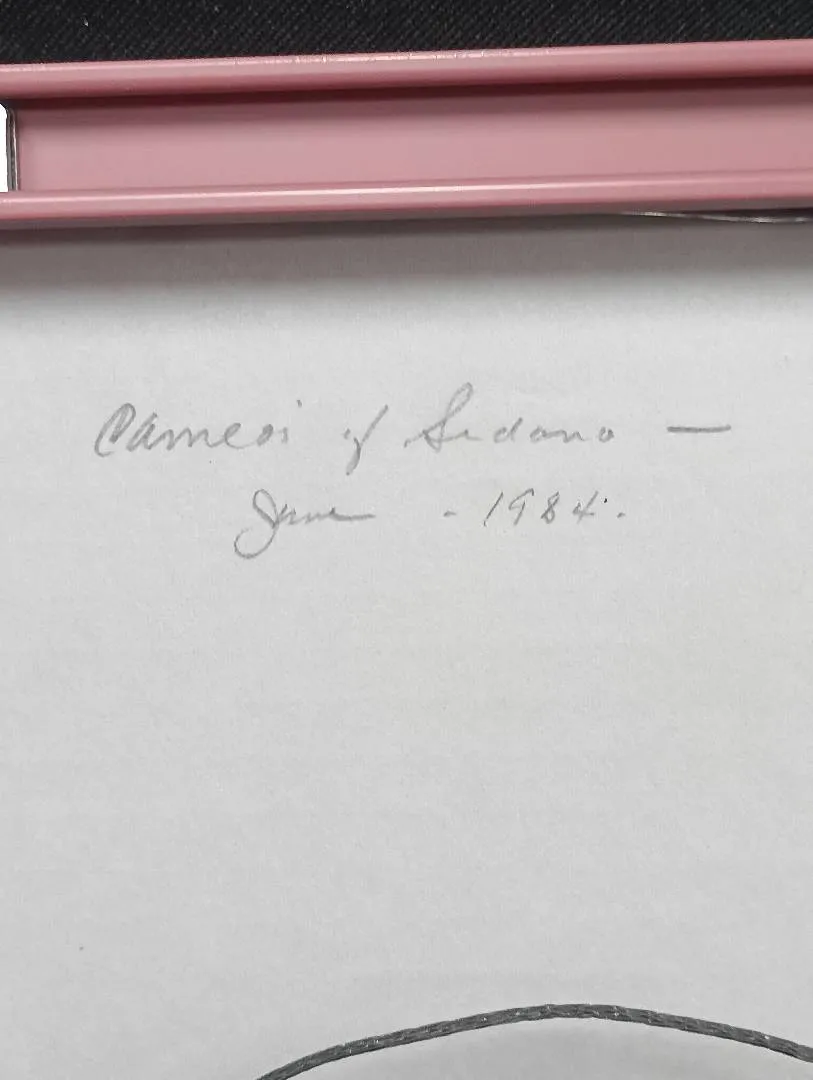 Cameos of Sedona —
June - 1984.